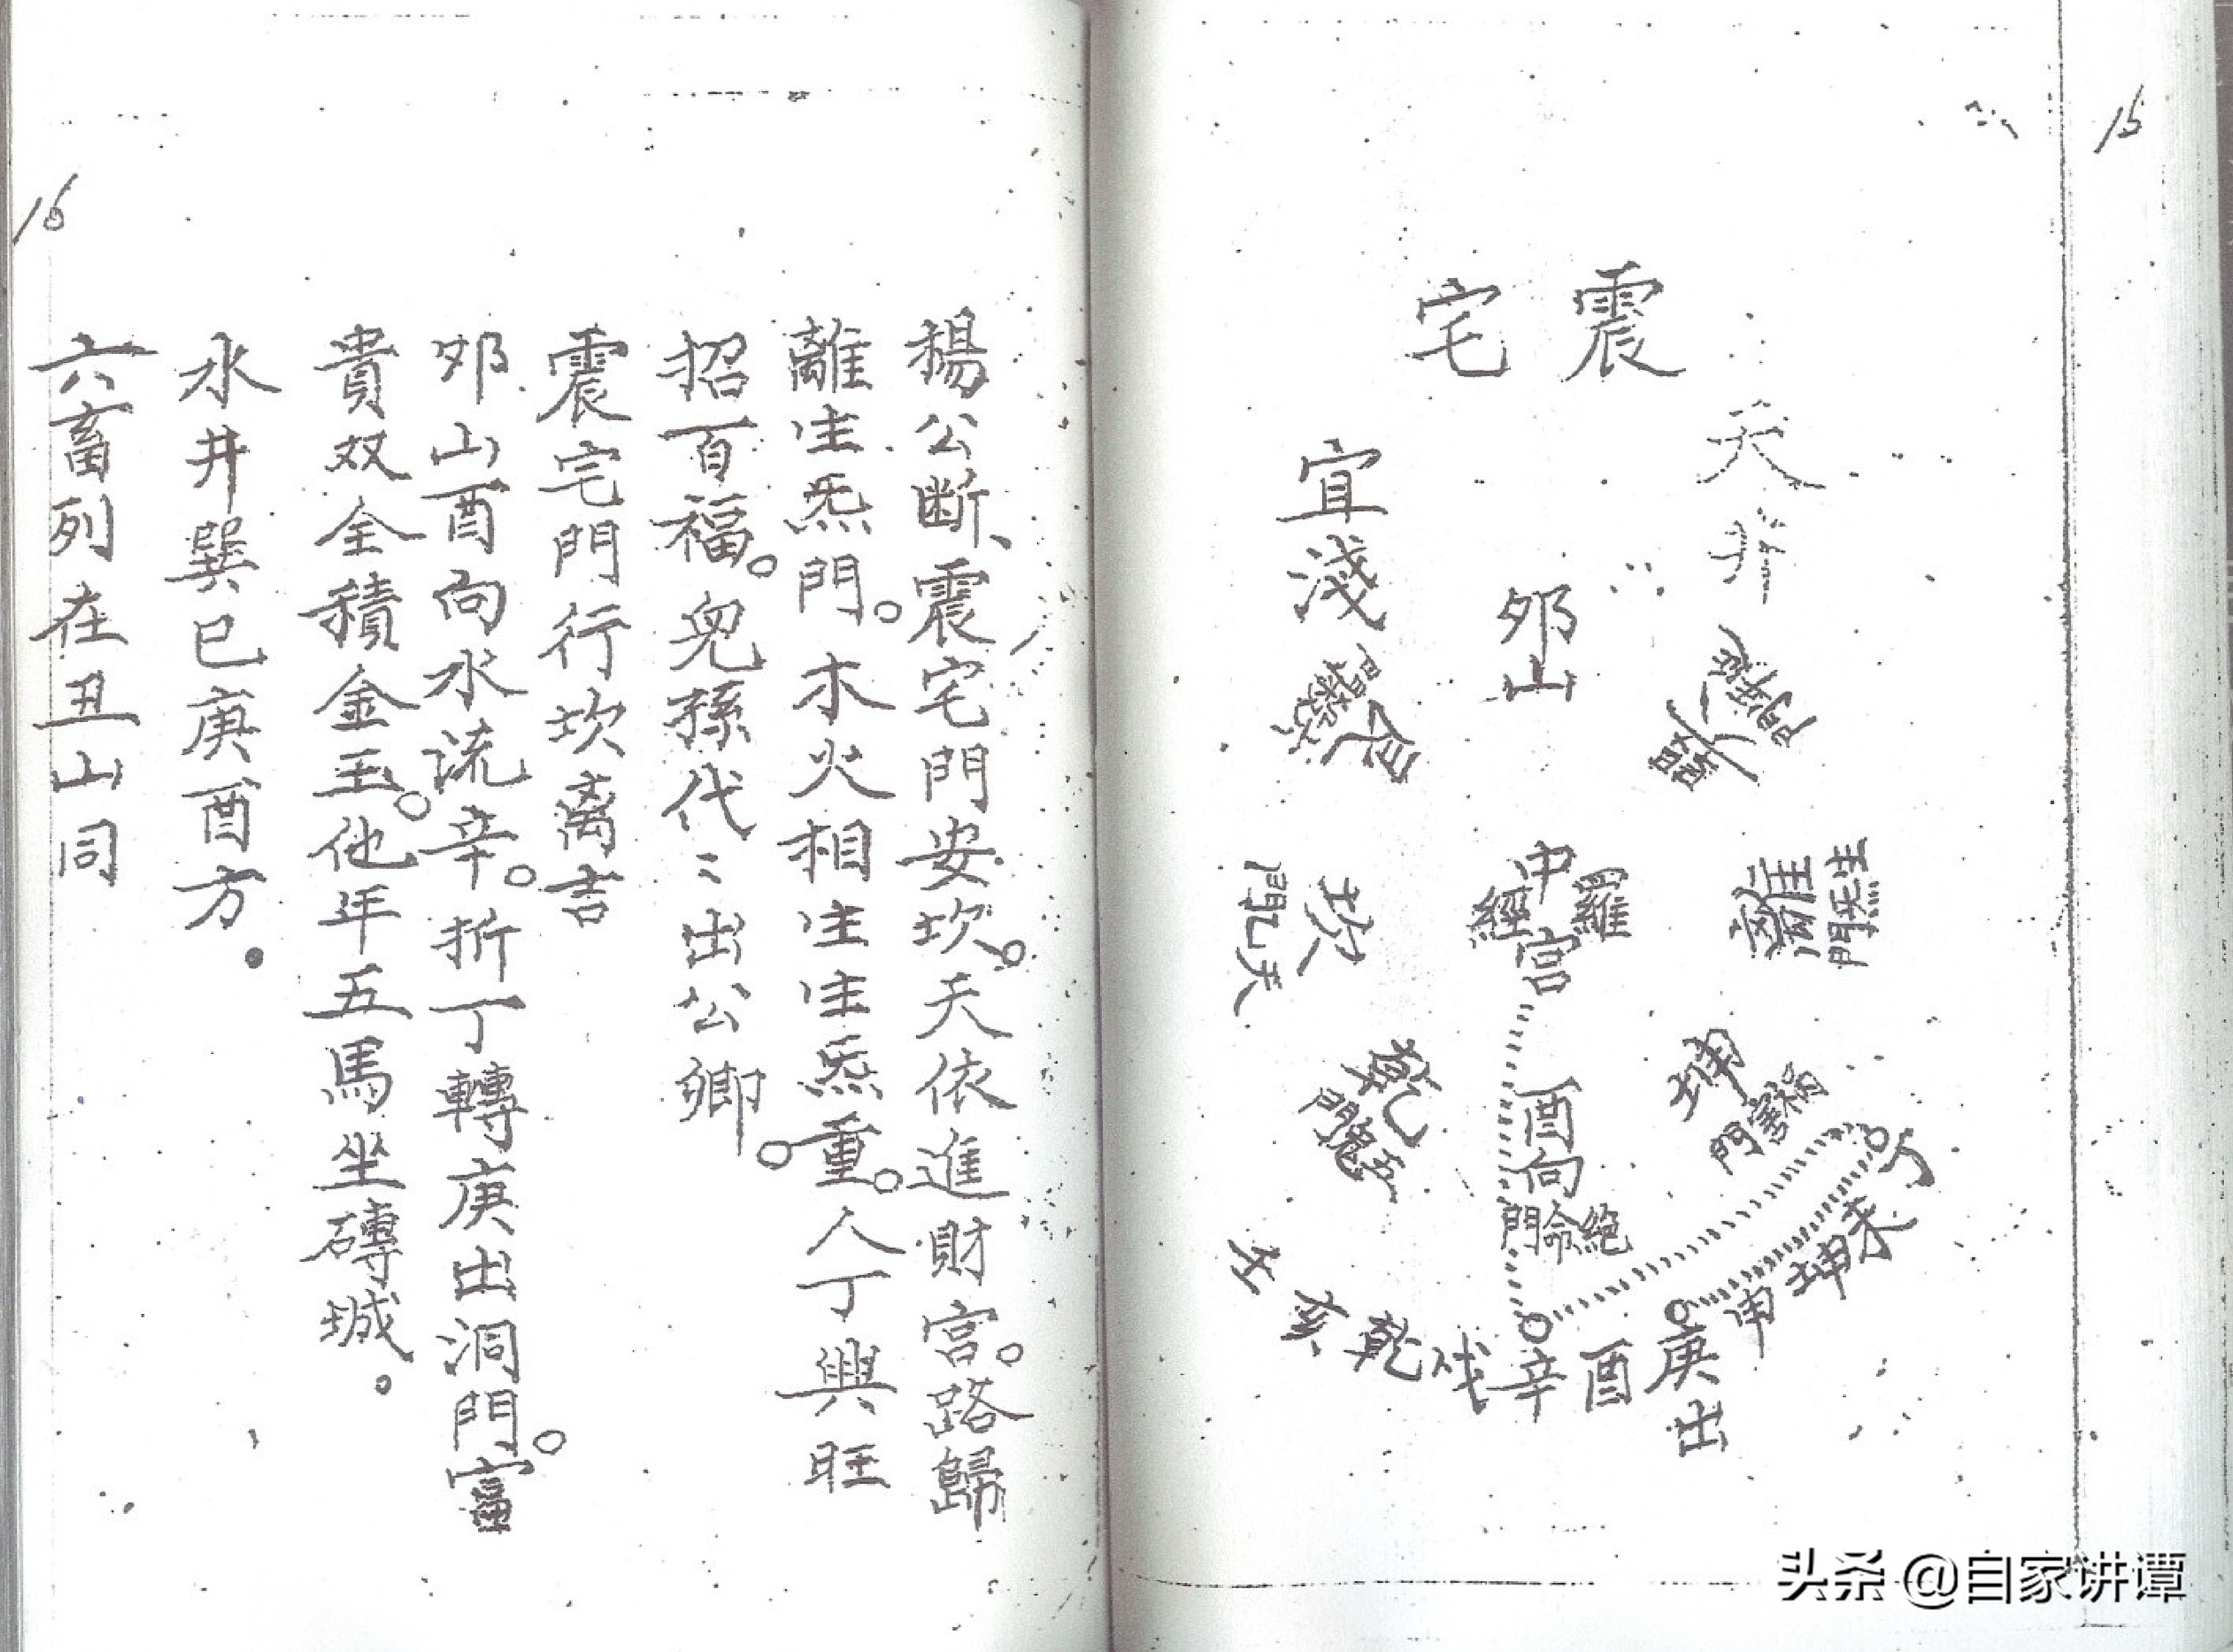 15
震宅
天井
宜淺
夘山
中宮
羅經
離
生炁門
坎
天乙門
坤
禍害門
乾
五鬼門
酉向
絶命門
丁未坤申庚酉辛戌乾亥壬
出
16
楊公断、震宅門安坎。天依進財宮。路歸
離生炁門。木火相生生炁重。人丁興旺
招百福。兒孫代〻出公卿。
震宅門行坎离吉
夘山酉向水流辛。折丁轉庚出洞門。富
貴双全積金玉。他年五馬坐磚城。
水井巽巳庚酉方。
六畜列在丑山同
头条 @自家讲谭